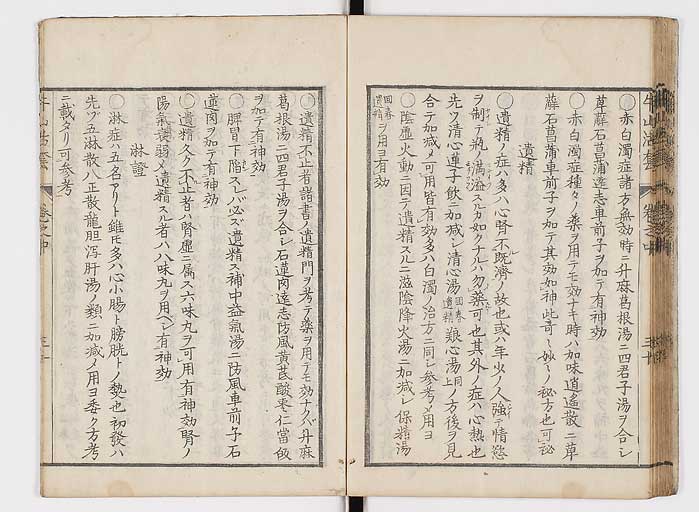 ○赤白濁症諸方無効時ニ升麻葛根湯ニ四君子湯ヲ合シ
萆薢石菖蒲遠志車前子ヲ加テ有神効
○赤白濁症種々ノ藥ヲ用テモ効ナキ時ハ加味逍遙散ニ萆
薢石菖蒲車前子ヲ加テ其効如神此竒々妙々ノ祕方也可祕
遺精
○遺精ノ症ハ多ハ心腎不既濟ノ故也或ハ年少ノ人強テ情慾
ヲ制テ瓶ノ滿溢スルカ如クナルハ勿藥可也其外ノ症ハ心熱也
先ツ清心蓮子飲ニ加減シ清心湯回春遺精艱心湯同上ノ方後ヲ見
合テ加減メ可用皆有効多ハ白濁ノ治方ニ同シ參考メ用ヨ
○陰虚火動ニ因テ遺精スルニ滋陰降火湯ニ加減シ保精湯
回春遺精ヲ用ヨ有効
○遺精不止者諸書ノ遺精門ヲ考テ藥ヲ用テモ効ナクハ升麻
葛根湯ニ四君子湯ヲ合シ石蓮肉遠志防風黄芪酸棗仁當皈
ヲ加テ有神効
○脾胃下陷スレバ必ズ遺精ス補中益氣湯ニ防風車前子石
蓮肉ヲ加テ有神効
○遺精久ク不止者ハ腎虚ニ屬ス六味丸ヲ可用有神効腎ノ
陽氣衰弱ノ遺精スル者ハ八味丸ヲ用ベシ有神効
淋證
○淋症ハ五名アリト雖氏多ハ心小腸ト膀胱トノ熱也初發ハ
先ツ五淋散八正散龍胆泻肝湯ノ類ニ加減メ用ヨ委ク方考
ニ載タリ可參考
牛山活套
卷之中
三十